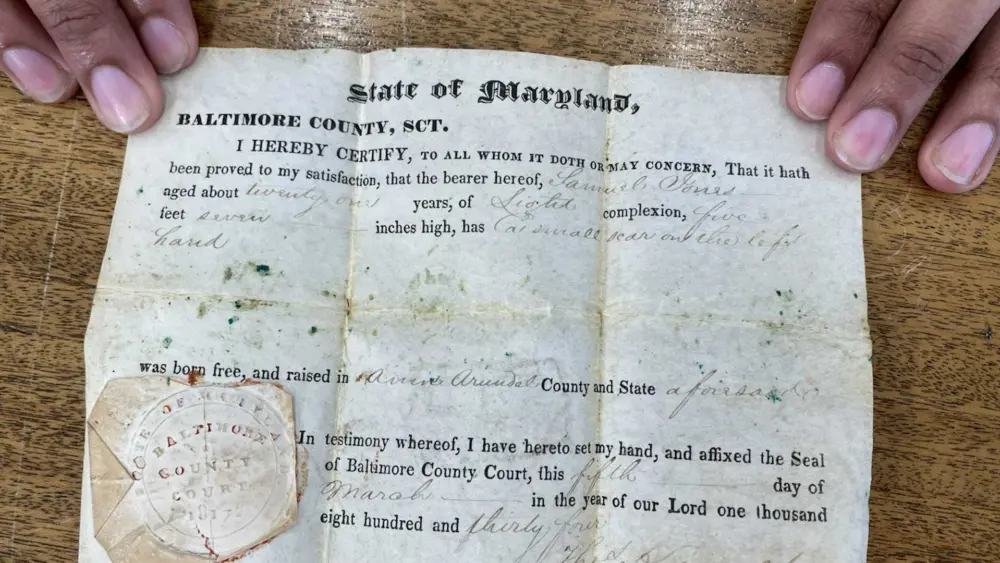 State of Maryland,
BALTIMORE COUNTY, SCT.
I HEREBY CERTIFY, TO ALL WHOM IT DOTH OR MAY CONCERN, That it hath
been proved to my satisfaction, that the bearer hereof, Samuel Jones
aged about twenty one years, of Light complexion, five
feet seven inches high, has (a small scar on the left
hand
was born free, and raised in Anne Arundel County and State aforesaid
In testimony whereof, I have hereto set my hand, and affixed the Seal
of Baltimore County Court, this fifth day of
March in the year of our Lord one thousand
eight hundred and thirty four
BALTIMORE
COUNTY
COURT
1817